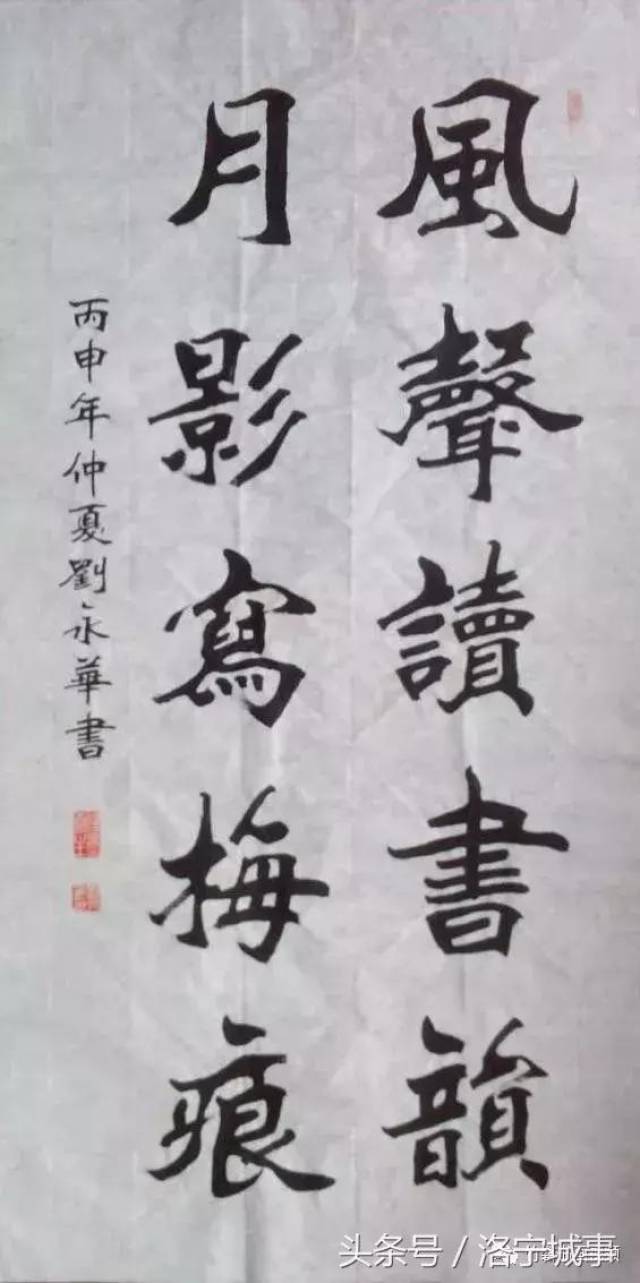 風聲讀書韻
月影寫梅痕
丙申年仲夏劉永華書
头条号／洛宁城事